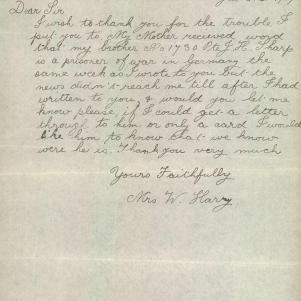 Dear Sir
I wish to thank you for the trouble I
put you to, My Mother recieved word
that my brother No 1730 Pte J. H. Sharp
is a prisoner of war in Germany the
same week as I wrote to you but the
news didn't reach me till after I had
written to you, & would you let me
know please if I could get a letter
through to him or only a card I would
like him to know that we know
were he is. Thank you very much
Yours Faithfully
Mrs W. Harry